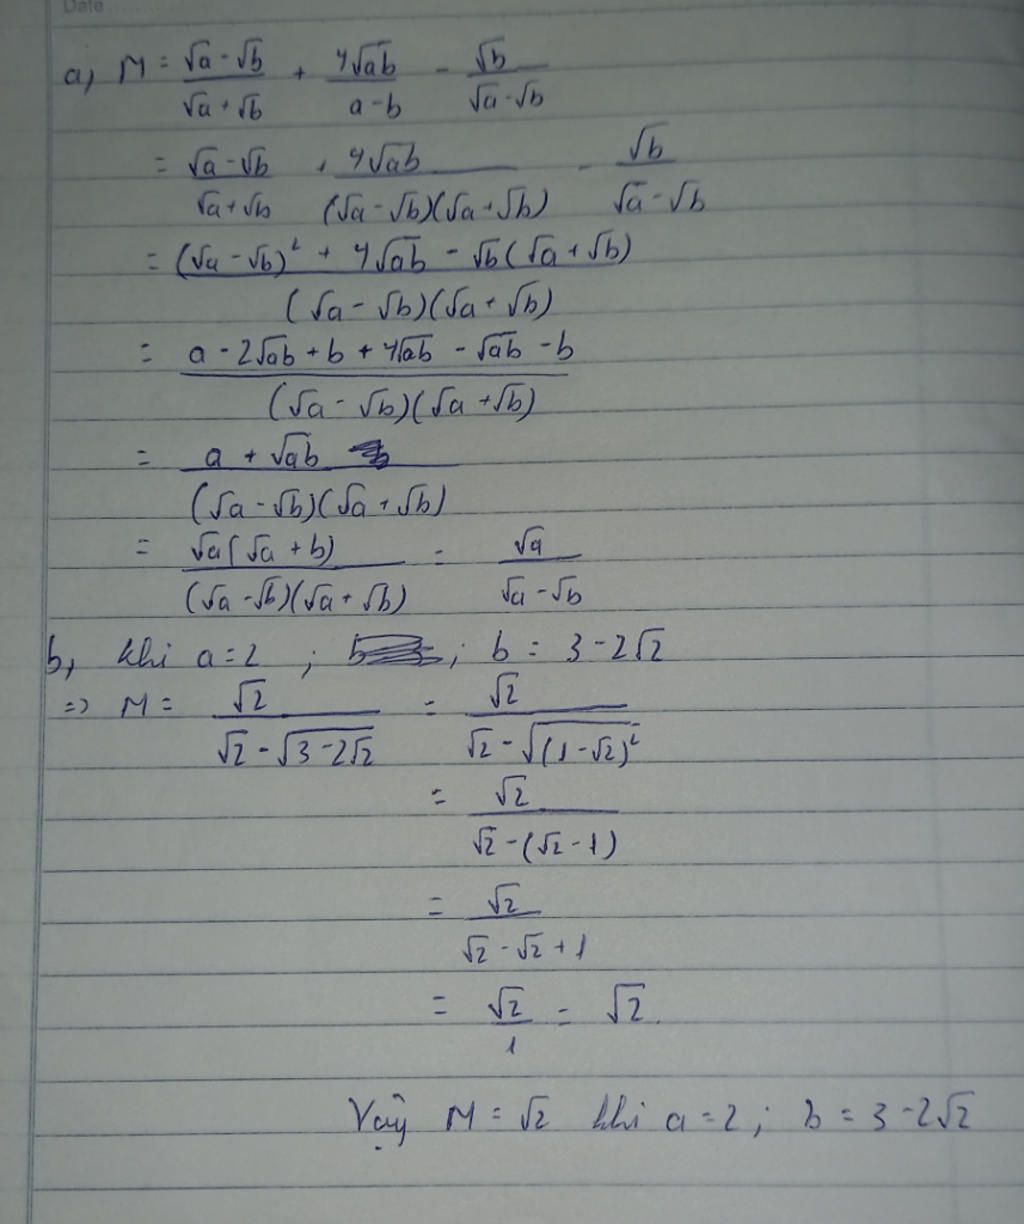 Date
a, M = (√a - √b)/(√a + √b) + 4√ab/(a - b) - √b/(√a - √b)
= (√a - √b)/(√a + √b) + 4√ab/((√a - √b)(√a + √b)) - √b/(√a - √b)
= ((√a - √b)² + 4√ab - √b(√a + √b))/((√a - √b)(√a + √b))
= (a - 2√ab + b + 4√ab - √ab - b)/((√a - √b)(√a + √b))
= (a + √ab)/((√a - √b)(√a + √b))
= √a(√a + b)/((√a - √b)(√a + √b)) = √a/(√a - √b)
b, khi a = 2 ; b ; b = 3 - 2√2
=> M = √2/(√2 - √(3 - 2√2)) = √2/(√2 - √((1 - √2)²))
= √2/(√2 - (√2 - 1))
= √2/(√2 - √2 + 1)
= √2/1 = √2.
Vậy M = √2 khi a = 2 ; b = 3 - 2√2